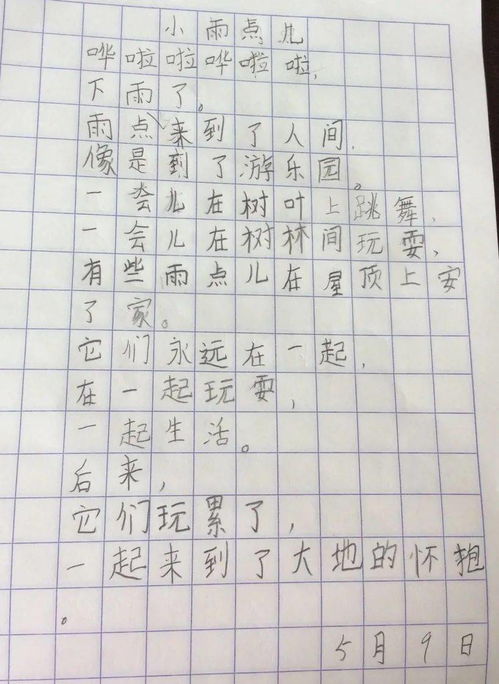 小雨点儿
哗啦啦哗啦啦,
下雨了。
雨点、来到了人间,
像是到了游乐园。
一会儿在树叶上跳舞,
一会儿在树林间玩耍,
有些雨点儿在屋顶上安
了家。
它们永远在一起,
在一起玩耍,
一起生活。
后来,
它们玩累了,
一起来到了大地的怀抱
。
5月9日